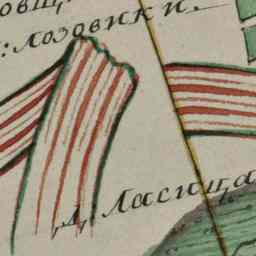 овщ.
: лозовики.
Д. Ласица